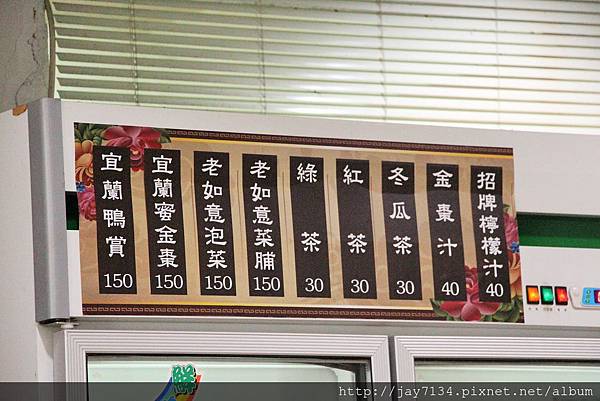 招牌檸檬汁 40
金棗汁 40
冬瓜茶 30
紅茶 30
綠茶 30
老如意菜脯 150
老如意泡菜 150
宜蘭蜜金棗 150
宜蘭鴨賞 150
http://jay7134.pixnet.net/album